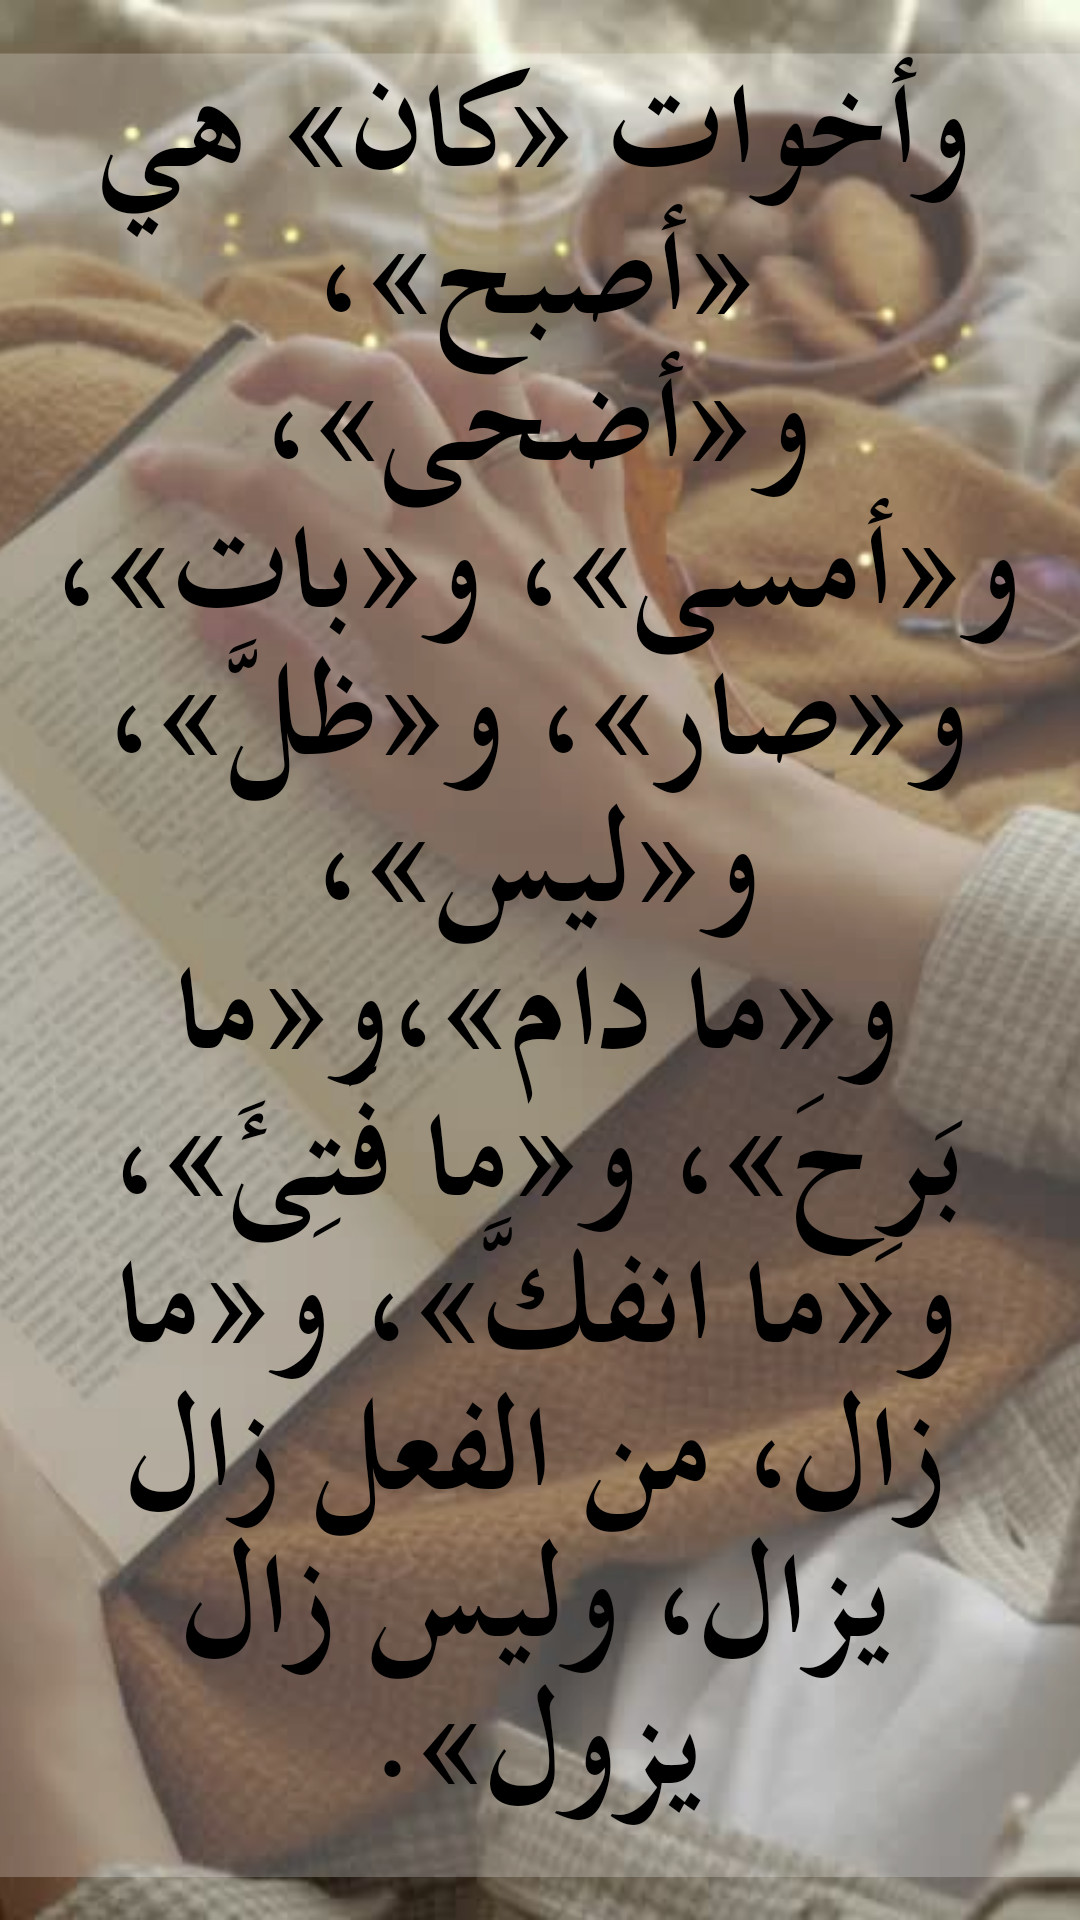 وأخوات «كان» هي
«أصبح»،
و«أضحى»،
و«أمسى»، و«بات»،
و«صار»، و«ظلَّ»،
و«ليس»،
و«ما دام»،و«ما
بَرِحَ»، و«ما فَتِىَٔ»،
و«ما انفكَّ»، و«ما
زال، من الفعل زال
يزال، وليس زال
يزول».